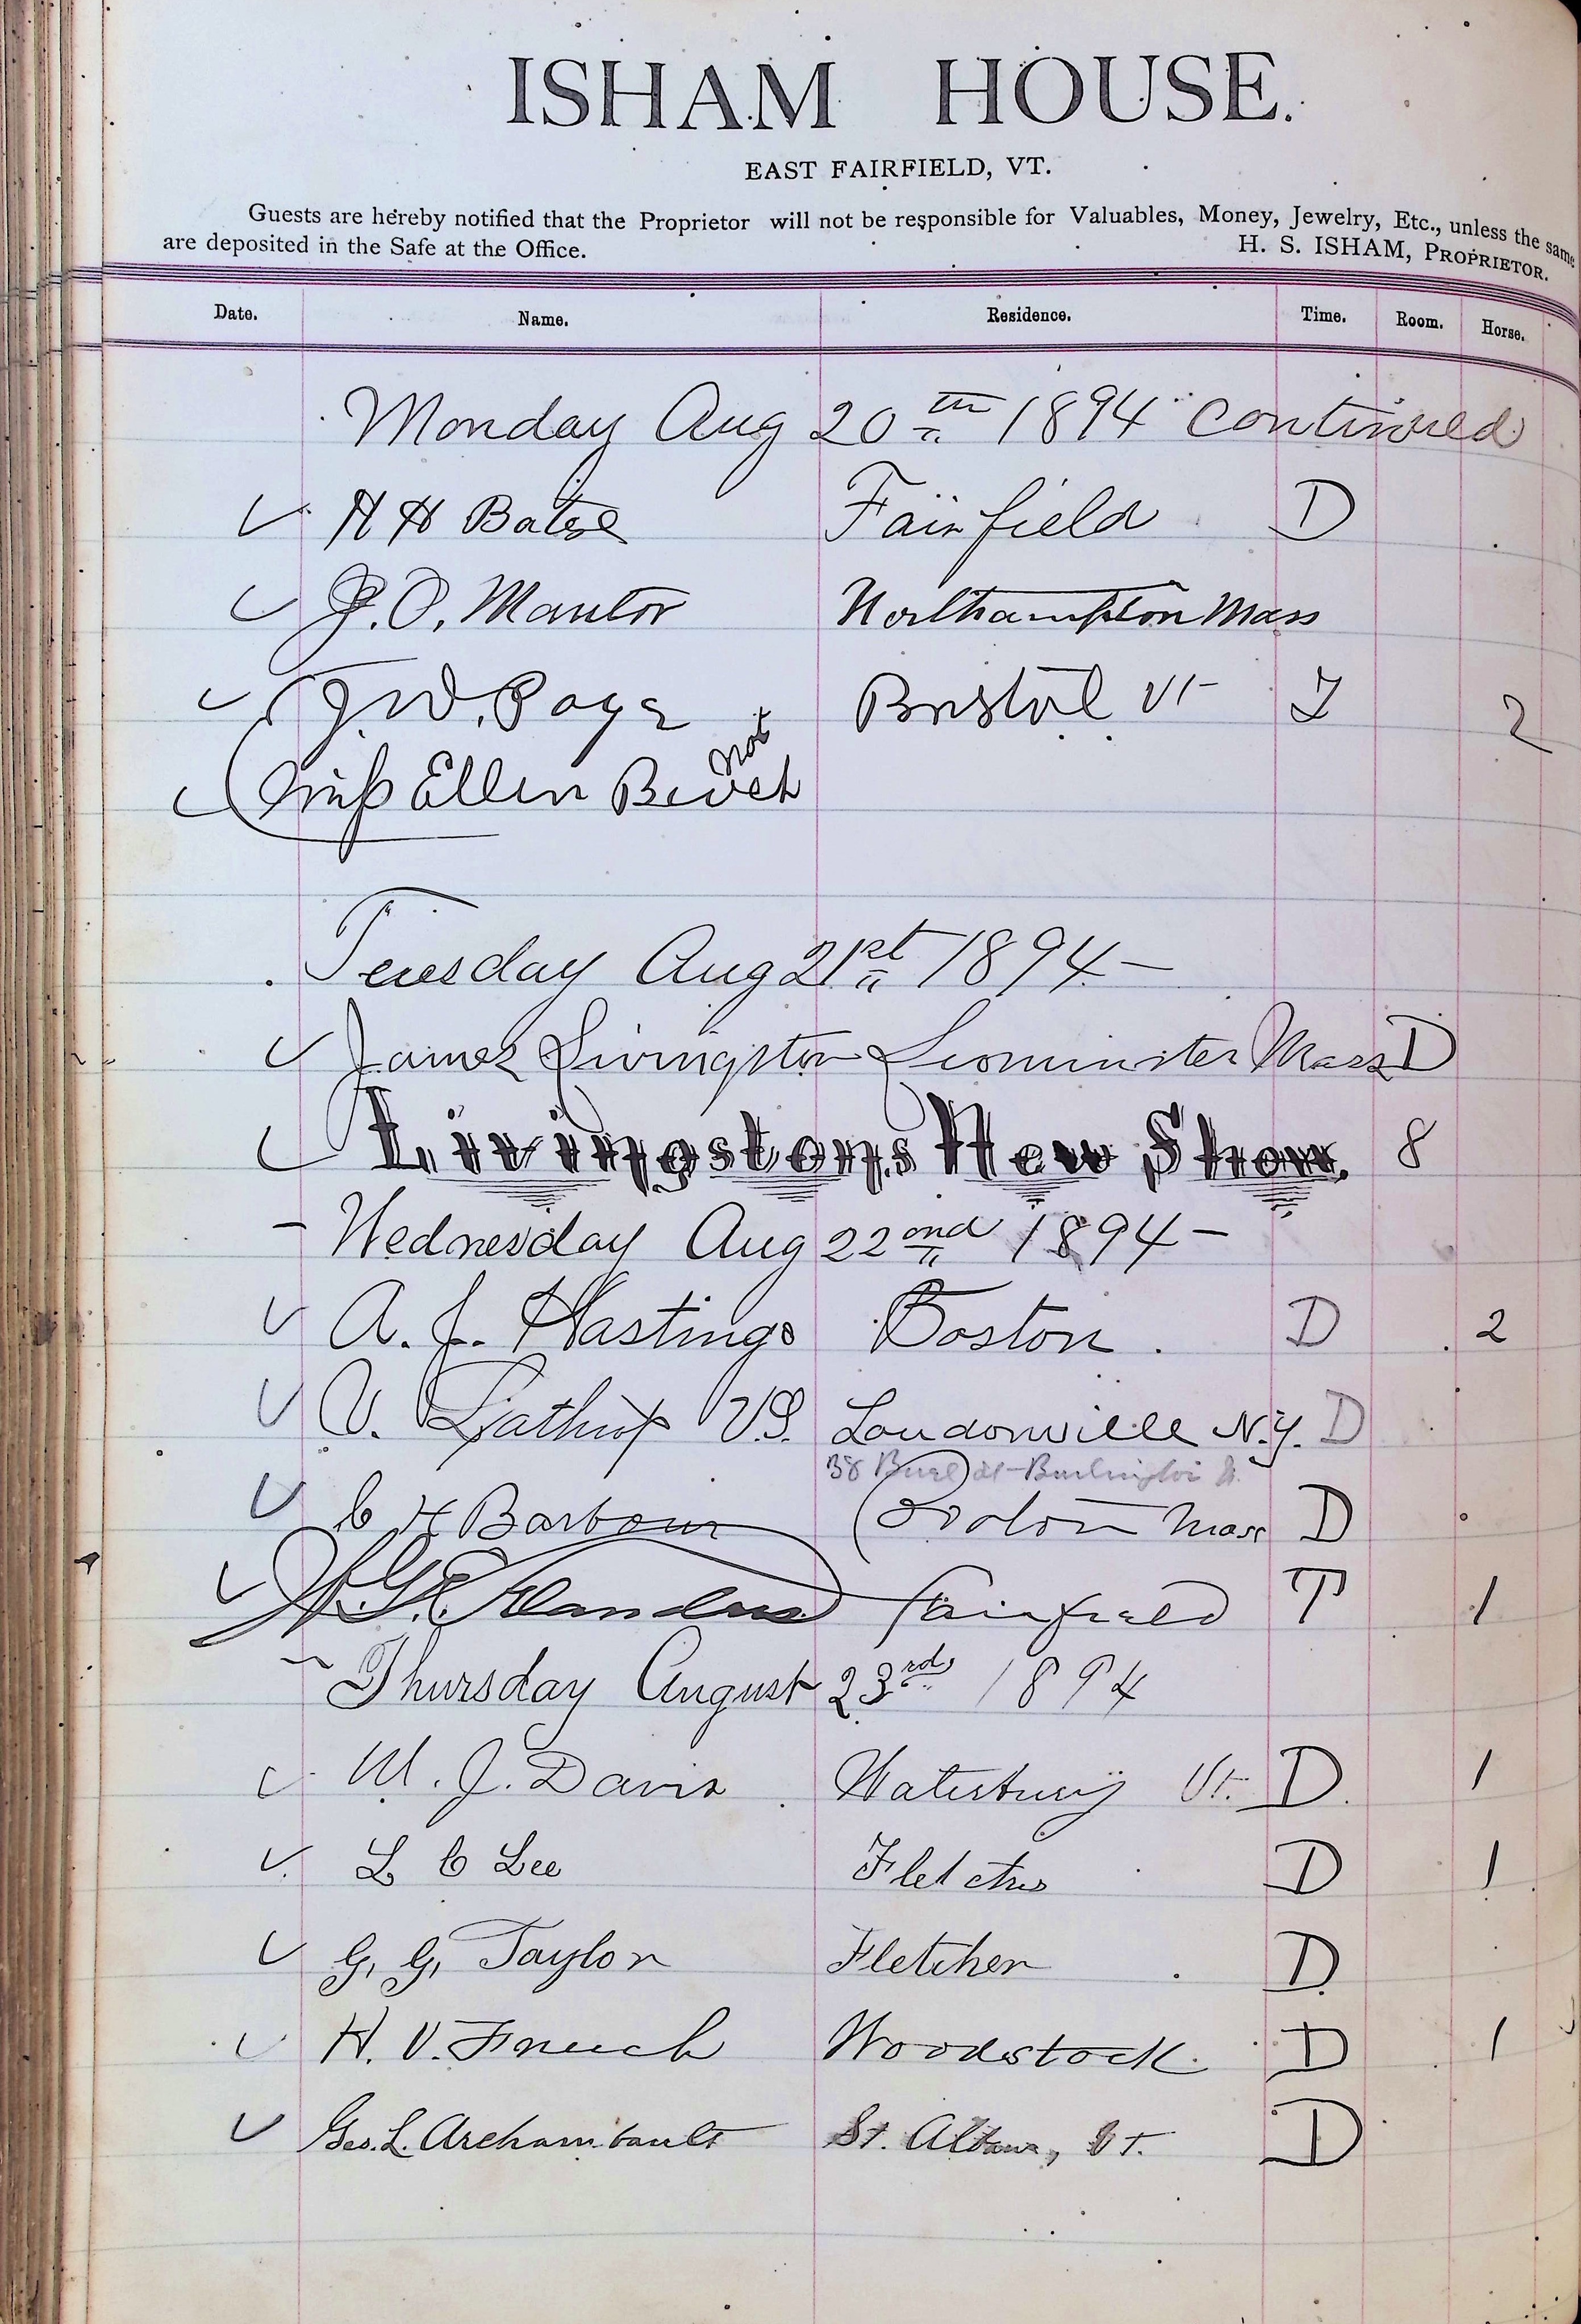 ISHAM HOUSE.
EAST FAIRFIELD, VT.
Guests are hereby notified that the Proprietor will not be responsible for Valuables, Money, Jewelry, Etc., unless the same
are deposited in the Safe at the Office. H. S. ISHAM, PROPRIETOR.
Date. Name. Residence. Time. Room. Horse.
Monday Aug 20th 1894 continued
H H Fairfield D
J. O. Mantor Northampton Mass
J. W. Page Bristol Vt 2
not
Miss Ellen
Tuesday Aug 21st 1894
James Livingston Leominster Mass D
Livingstons New Show. 8
Wednesday Aug 22nd 1894
A. J. Hastings Boston. D 2
V. Lathrop V.S. Loudonville N.Y. D
38 Burlington
C H Barbour Boston Mass D
Fairfield T 1
Thursday August 23rd 1894
M. J. Davis Waterbury Vt. D 1
L C Lee Fletcher D 1
G. G. Taylor Fletcher D
H. V. French Woodstock. D 1
Geo. L. Archambault St. Albans, Vt. D